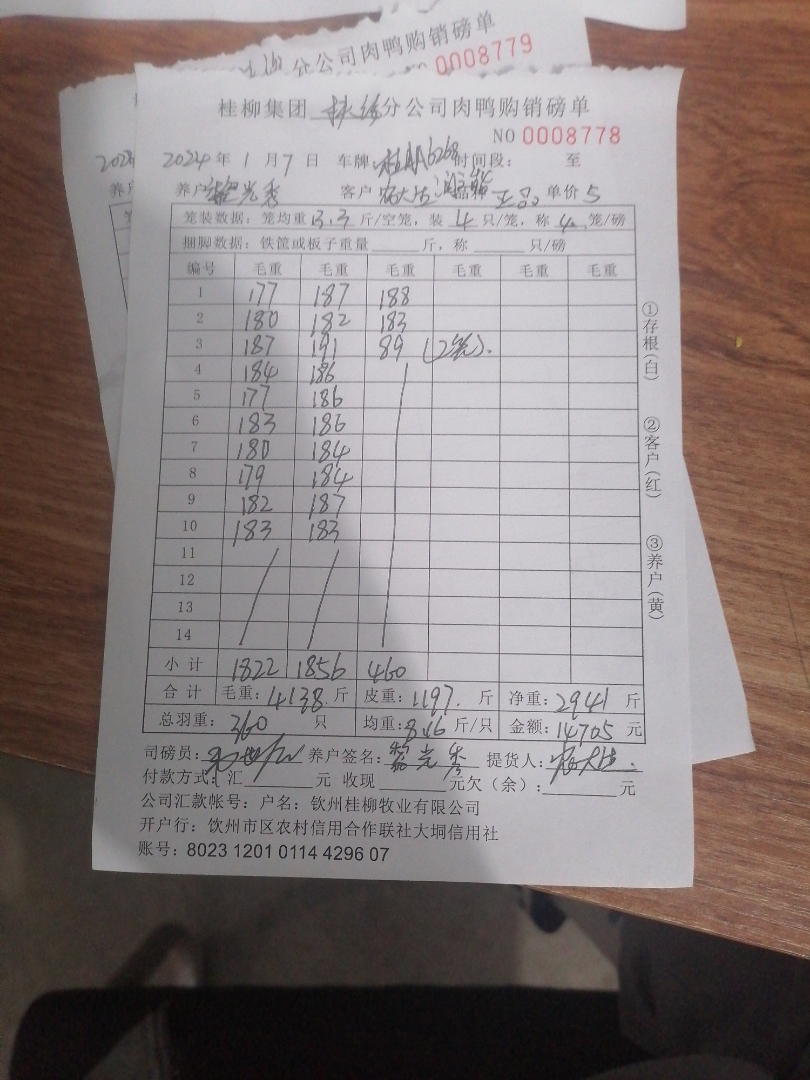 分公司肉鸭购销磅单
0008779
桂柳集团 扶绥 分公司肉鸭购销磅单
NO 0008778
2024 年 1 月 7 日 车牌: 时间段: 至
养户 光秀 客户 品种 正品 单价 5
笼装数据: 笼均重 13.3 斤/空笼, 装 4 只/笼, 称 4 笼/磅
捆脚数据: 铁筐或板子重量 斤, 称 只/磅
编号 毛重 毛重 毛重 毛重 毛重 毛重
1 177 187 188
2 180 182 183
3 187 191 89 (2笼).
4 184 186
5 177 186
6 183 186
7 180 184
8 179 184
9 182 187
10 183 183
11
12
13
14
小计 1822 1856 460
合计 毛重: 4138. 斤 皮重: 1197. 斤 净重: 2941 斤
总羽重: 360 只 均重: 8.16 斤/只 金额: 14705 元
司磅员: 养户签名: 光秀 提货人:
付款方式: 汇 元 收现 元欠(余): 元
公司汇款帐号: 户名: 钦州桂柳牧业有限公司
开户行: 钦州市区农村信用合作联社大垌信用社
账号: 8023 1201 0114 4296 07
①存根(白)
②客户(红)
③养户(黄)